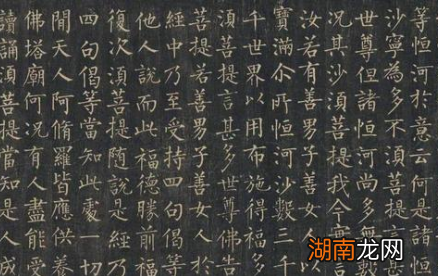 等恒河於意云何是諸恒
沙寧為多不須菩提
世尊但諸恒河尚多無數
況其沙須菩提我今實
汝若有善男子善女
寶滿尒所恒河沙數三千
千世界以用布施得福多
須菩提言甚多世尊佛告
菩提若善男子善女人於
經中乃至受持四句偈等
他人說而此福德勝前福
復次須菩提隨說是經乃
四句偈等當知此處一切
閒天人阿脩羅皆應供養
佛塔廟何況有人盡能受
讀誦須菩提當知是人成
湖南龙网